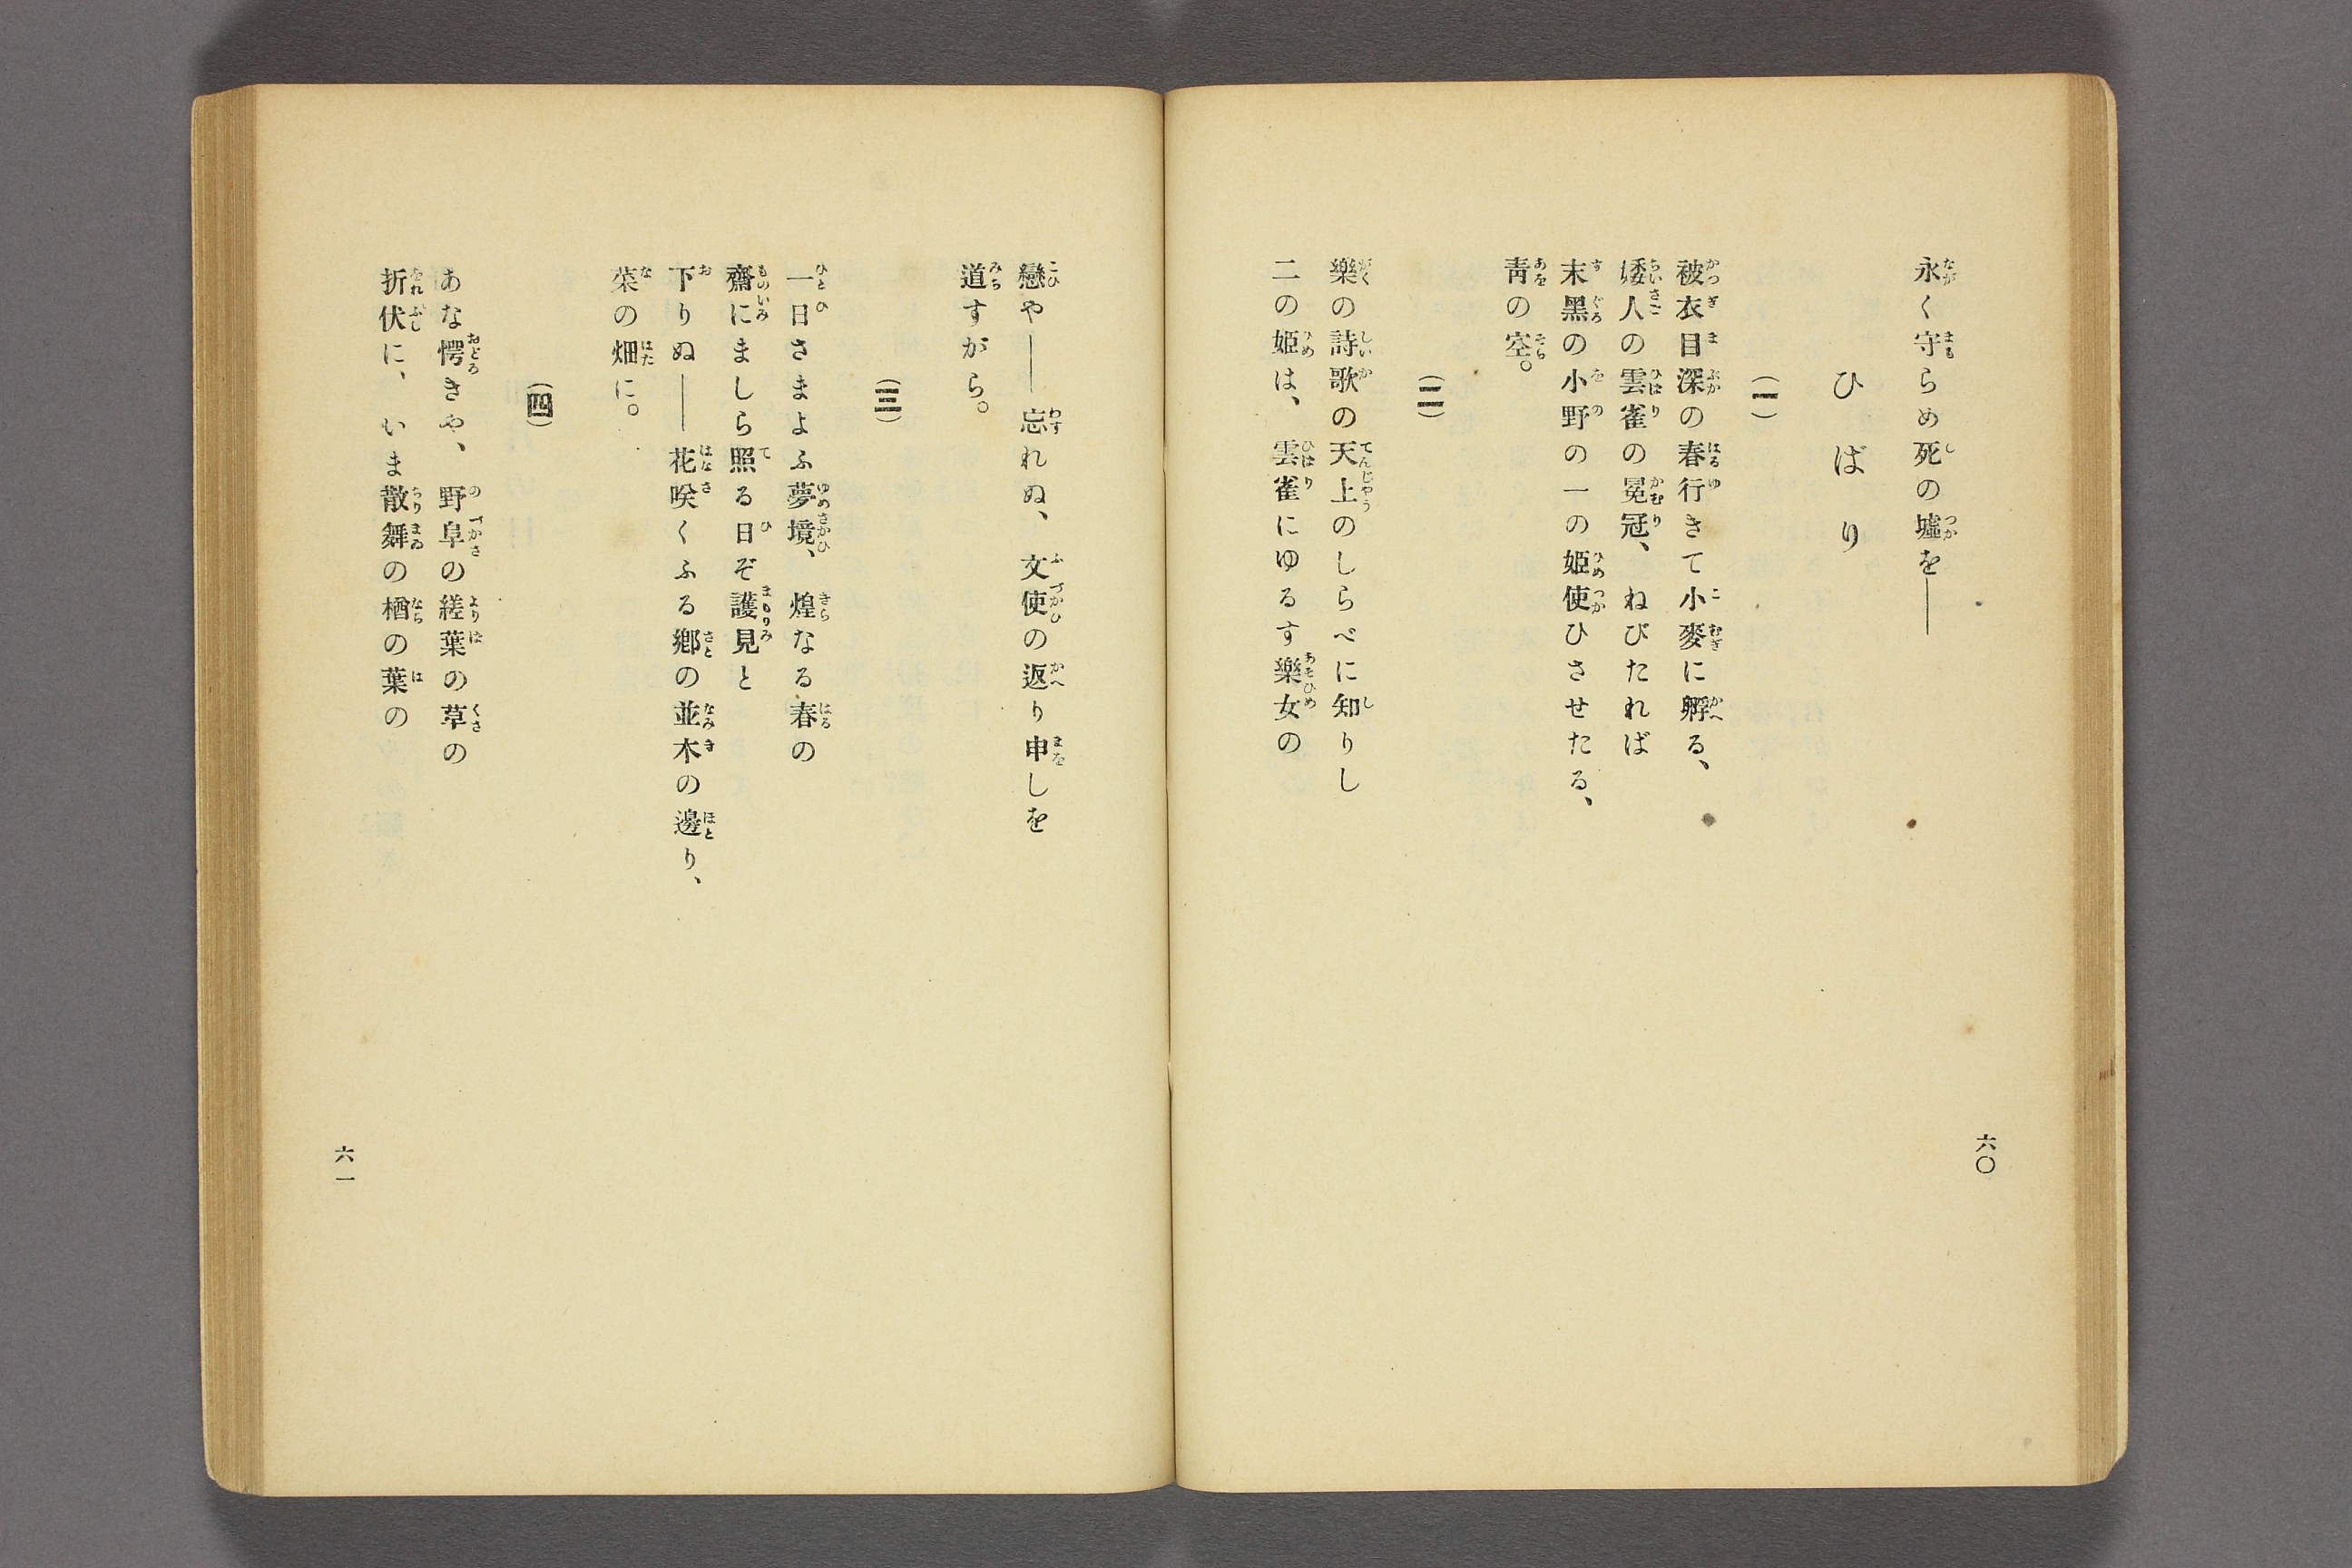 永く守らめ死の墟を――
ひばり
(一)
被衣目深の春行きて小麥に孵る、
矮人の雲雀の冕冠、ねびたれば
末黑の小野の一の姫使ひさせたる、
靑の空。
(二)
樂の詩歌の天上のしらべに知りし
二の姫は、雲雀にゆるす樂女の
六〇
戀や――忘れぬ、文使の返り申しを
道すがら。
(三)
一日さまよふ夢境、煌なる春の
齋にましら照る日ぞ護見と
下りぬ――花咲くふる鄕の並木の邊り、
菜の畑に。
(四)
あな愕きや、野阜の縒葉の草の
折伏に、いま散舞の楢の葉の
六一